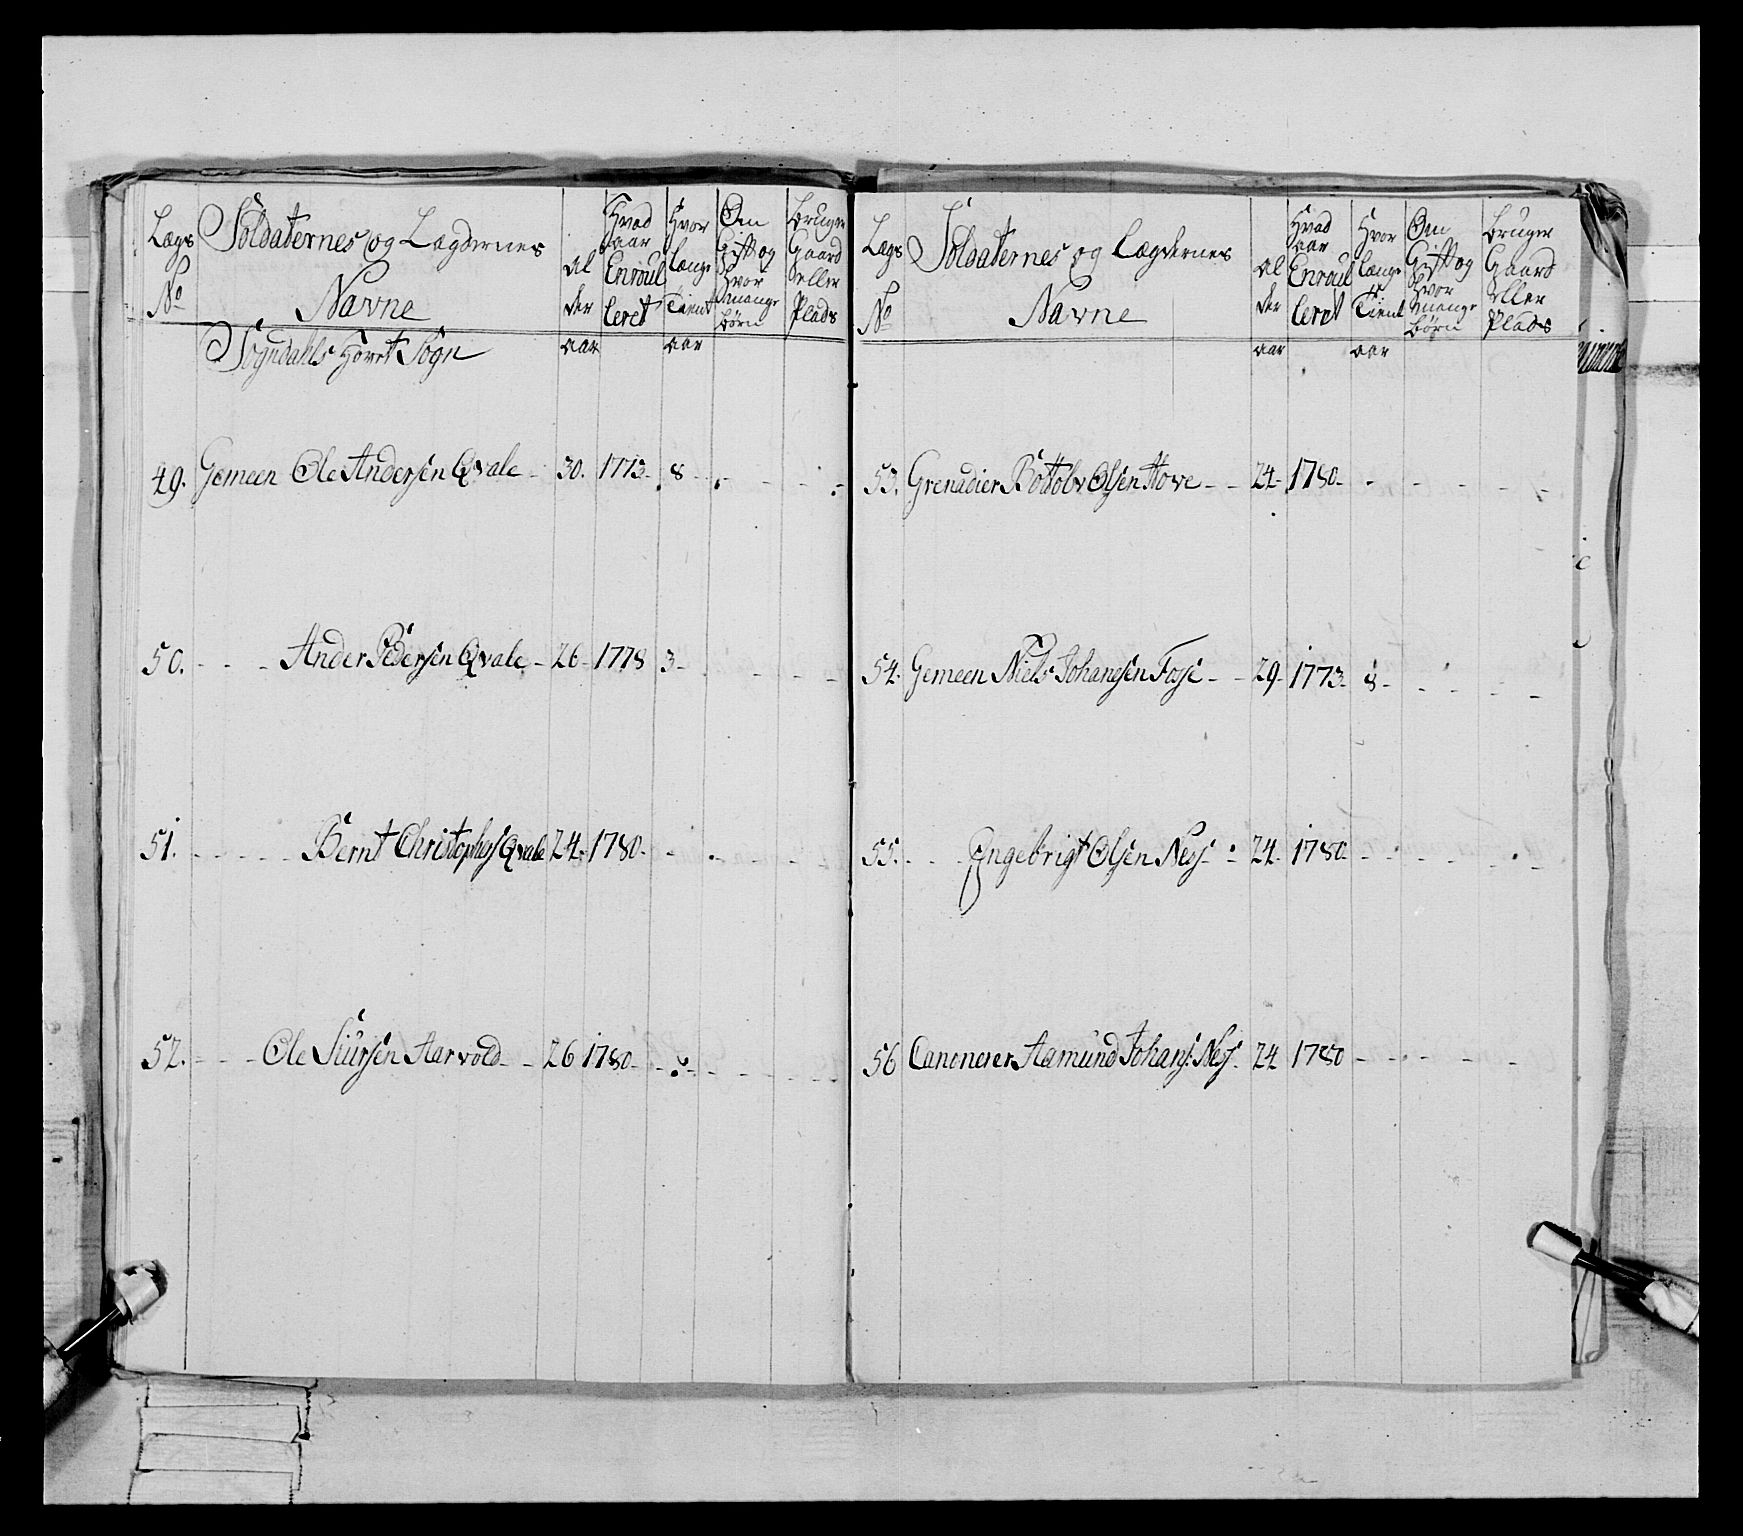 Lægs No
Soldaternes og Lægdernes Navne
Al der
Hvad aar Enroul leret
Hvor længe Tient
Om Gift og Hvor mange børn
Bruger Gaard eller Plads
Sogndahls Hovet Sogn aar aar
49. Gemeen Ole Andersen Qvale - 30. 1773- 8 - - - -
50. - - - Ander Pedersen Qvale - 26- 1778 3- - - -
51. - - - - - Bernt Christophers Qvale 24- 1780- - - - -
52. - - - Ole Siursen Aarvold - - 26 1780- - - - -
Lægs No
Soldaternes og Lægdernes Navne
Al der
Hvad aar Enroul leret
Hvor længe Tient
Om Gift og Hvor mange børn
Bruger Gaard eller Plads
aar aar
53. Grenadier Bottolv Olsen Hove - - 24- 1780- - - - -
54. Gemeen Niels Johansen Fosse - - 29- 1773- 8- - - -
55. - - - Engebrigt Olsen Ness - - 24- 1780- - - - -
56 Canonerer Aamund Johans: Ness - 24 1780 - - - -